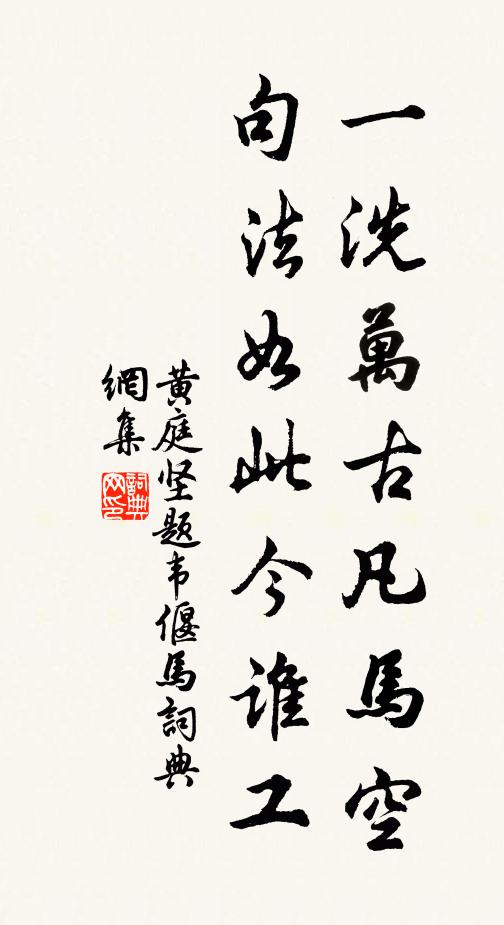 一洗萬古凡馬空
句法如此今谁工
黄庭坚题韦偃馬詞典
網集
詞典
网印